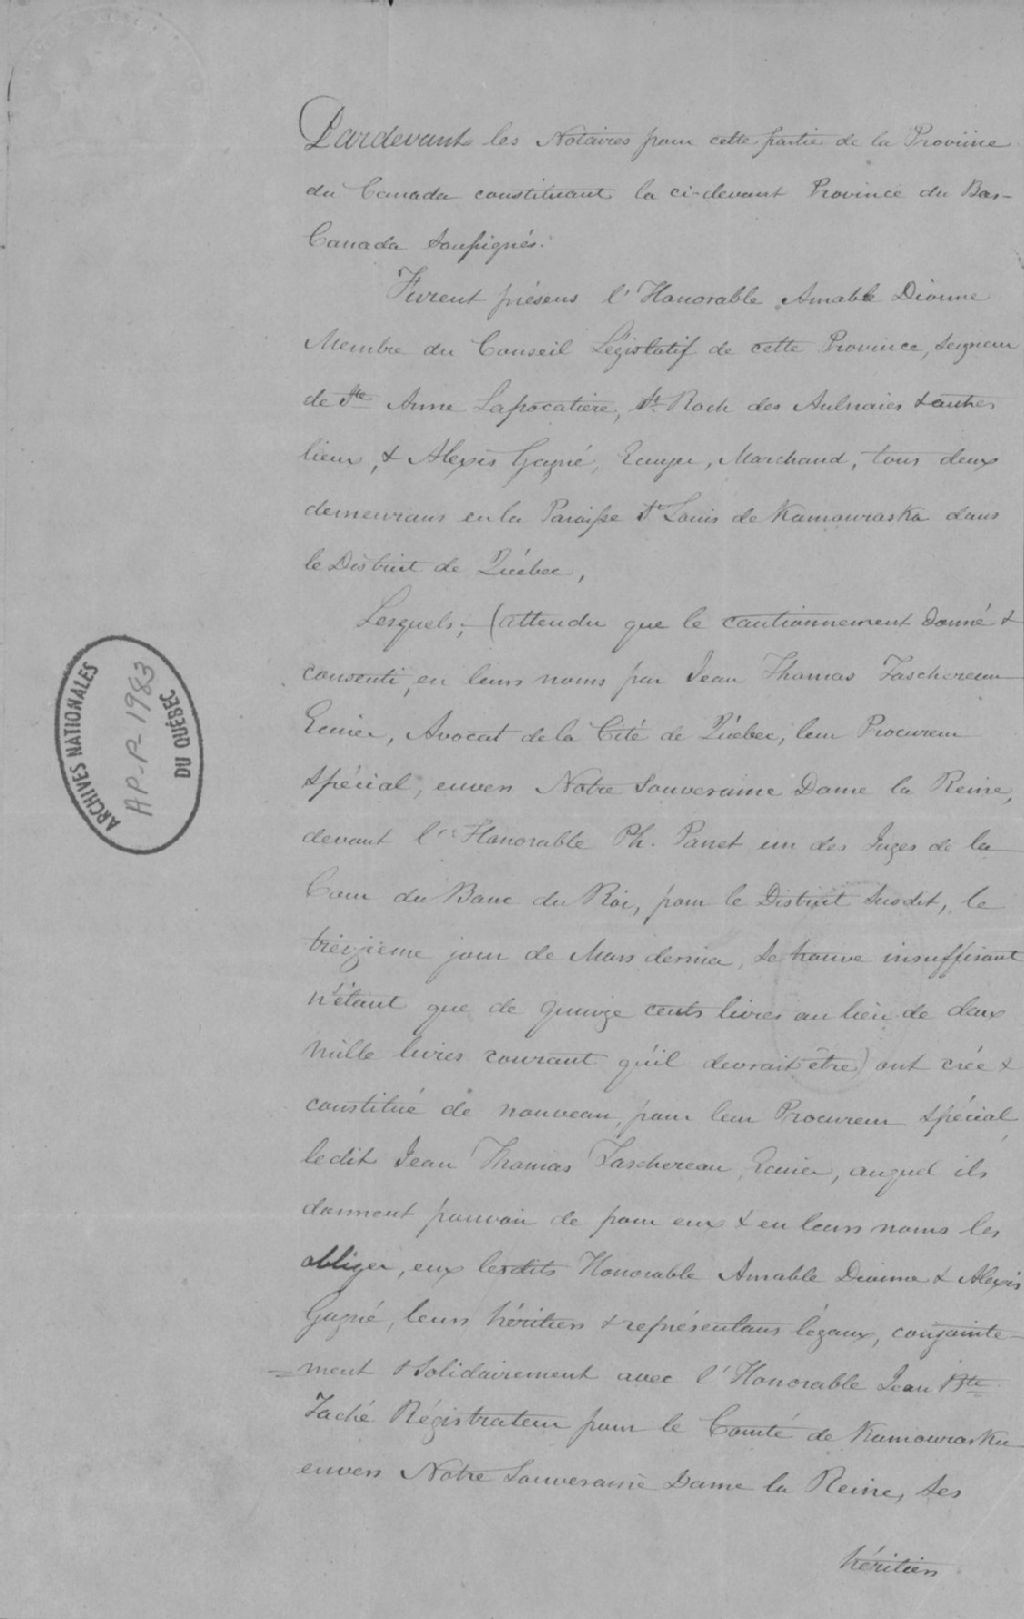 Pardevant les Notaires pour cette partie de la Province
du Canada constituant la ci-devant Province du Bas-
Canada Soussignés.
Furent présens l'Honorable Amable Dionne
Membre du Conseil Législatif de cette Province, Seigneur
de Ste Anne Lapocatiere, St Roch des Aulnaies & autres
lieux, & Alexis Gagné, Ecuyer, Marchand, tous deux
demeurans en la Paroisse St Louis de Kamouraska dans
le District de Québec,
Lesquels; (attendu que le cautionnement donné &
consenti, en leurs noms par Jean Thomas Taschereau
Ecuier, Avocat de la Cité de Québec, leur Procureur
Spécial, envers Notre Souveraine Dame la Reine,
devant l'Honorable Ph. Panet un des Juges de la
Cour du Banc du Roi, pour le District susdit, le
treizieme jour de Mars dernier, se trouve insuffisant
n'étant que de quinze cents livres au lieu de deux
mille livres courant qu'il devrait être) ont créé &
constitué de nouveau, pour leur Procureur Spécial,
ledit Jean Thomas Taschereau, Ecuier, auquel ils
donnent pouvoir de pour eux & en leurs noms les
obliger, eux lesdits Honorable Amable Dionne & Alexis
Gagné, leurs héritiers & représentans légaux, conjointe-
=ment & Solidairement avec l'Honorable Jean Bte
Taché Régistrateur pour le Comté de Kamouraska
envers Notre Souveraine Dame la Reine, Ses
héritiers
ARCHIVES NATIONALES
AP-P-1983
DU QUÉBEC